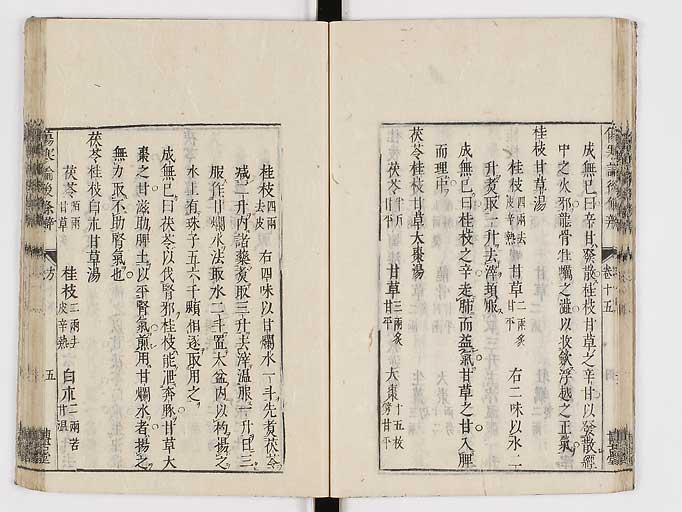 成無已曰辛甘發散桂枝甘草之辛甘以發散經
中之火邪龍骨牡蠣之澁以收斂浮越之正氣
桂枝甘草湯
桂枝四兩去皮辛熱　甘草二兩炙甘平　右二味以水三
升煑取一升去滓頓服
成無已曰桂枝之辛走肺而益氣甘草之甘入脾
而理中
茯苓桂枝甘草大棗湯
茯苓半斤甘平　甘草二兩炙甘平　大棗十五枚擘甘平
傷寒論後條辨　卷十五
桂枝四兩去皮　右四味以甘爛水一斗先煑茯苓
減二升内諸藥煑取三升去滓溫服一升日三
服作甘爛水法取水二斗置大盆内以杓揚之
水上有珠子五六千顆相逐取用之
成無已曰茯苓以伐腎邪桂枝能泄奔豚甘草大
棗之甘滋助脾土以平腎氣煎用甘爛水者揚之
無力取不助腎氣也
茯苓桂枝白朮甘草湯
茯苓四兩甘草　桂枝三兩去皮辛熱　白朮二兩苦甘溫
傷寒論後條辨　方　五